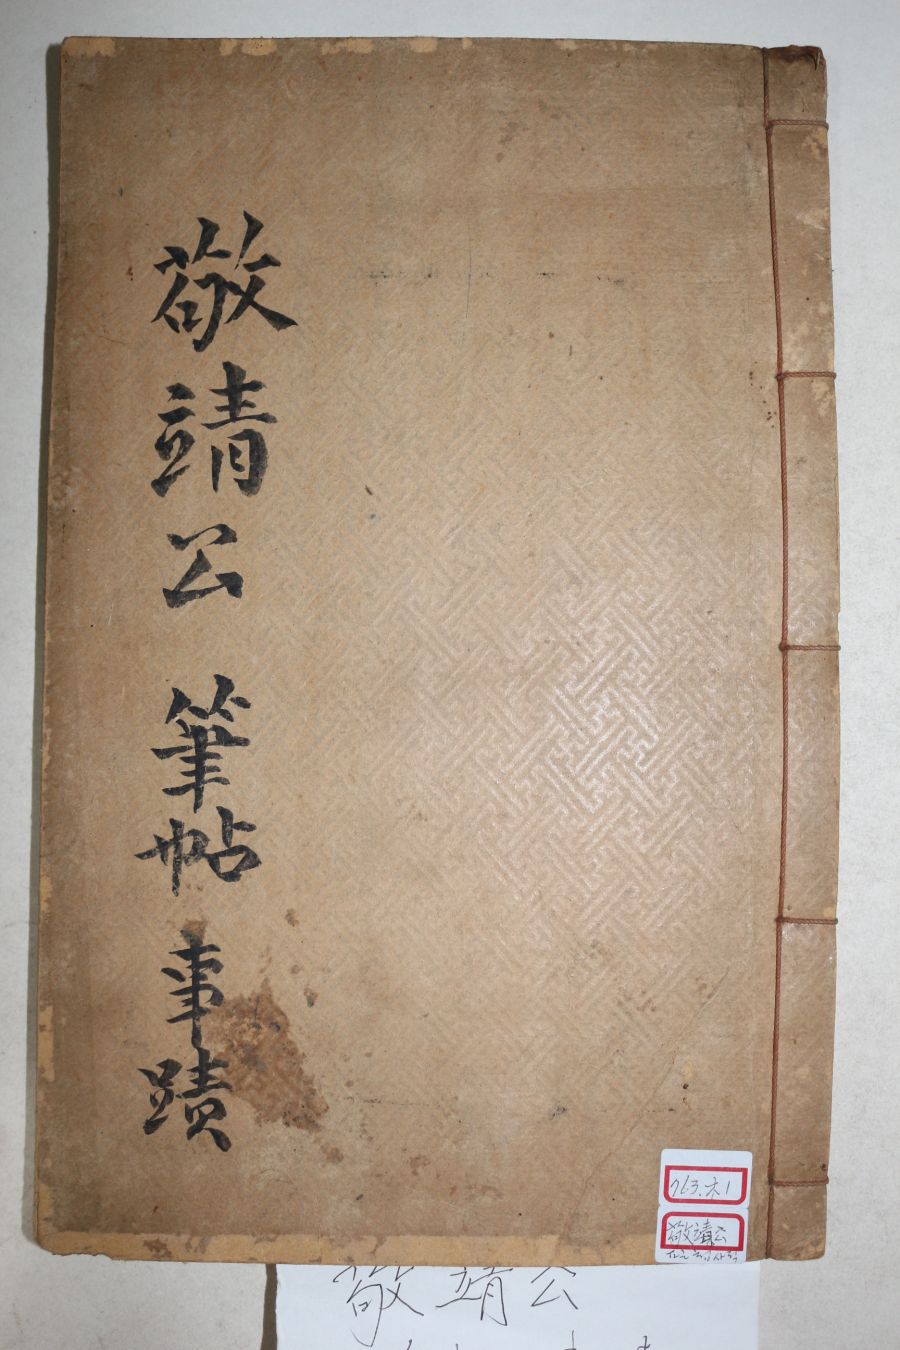 敬靖公筆帖事蹟
763.木1
敬靖公
敬靖公